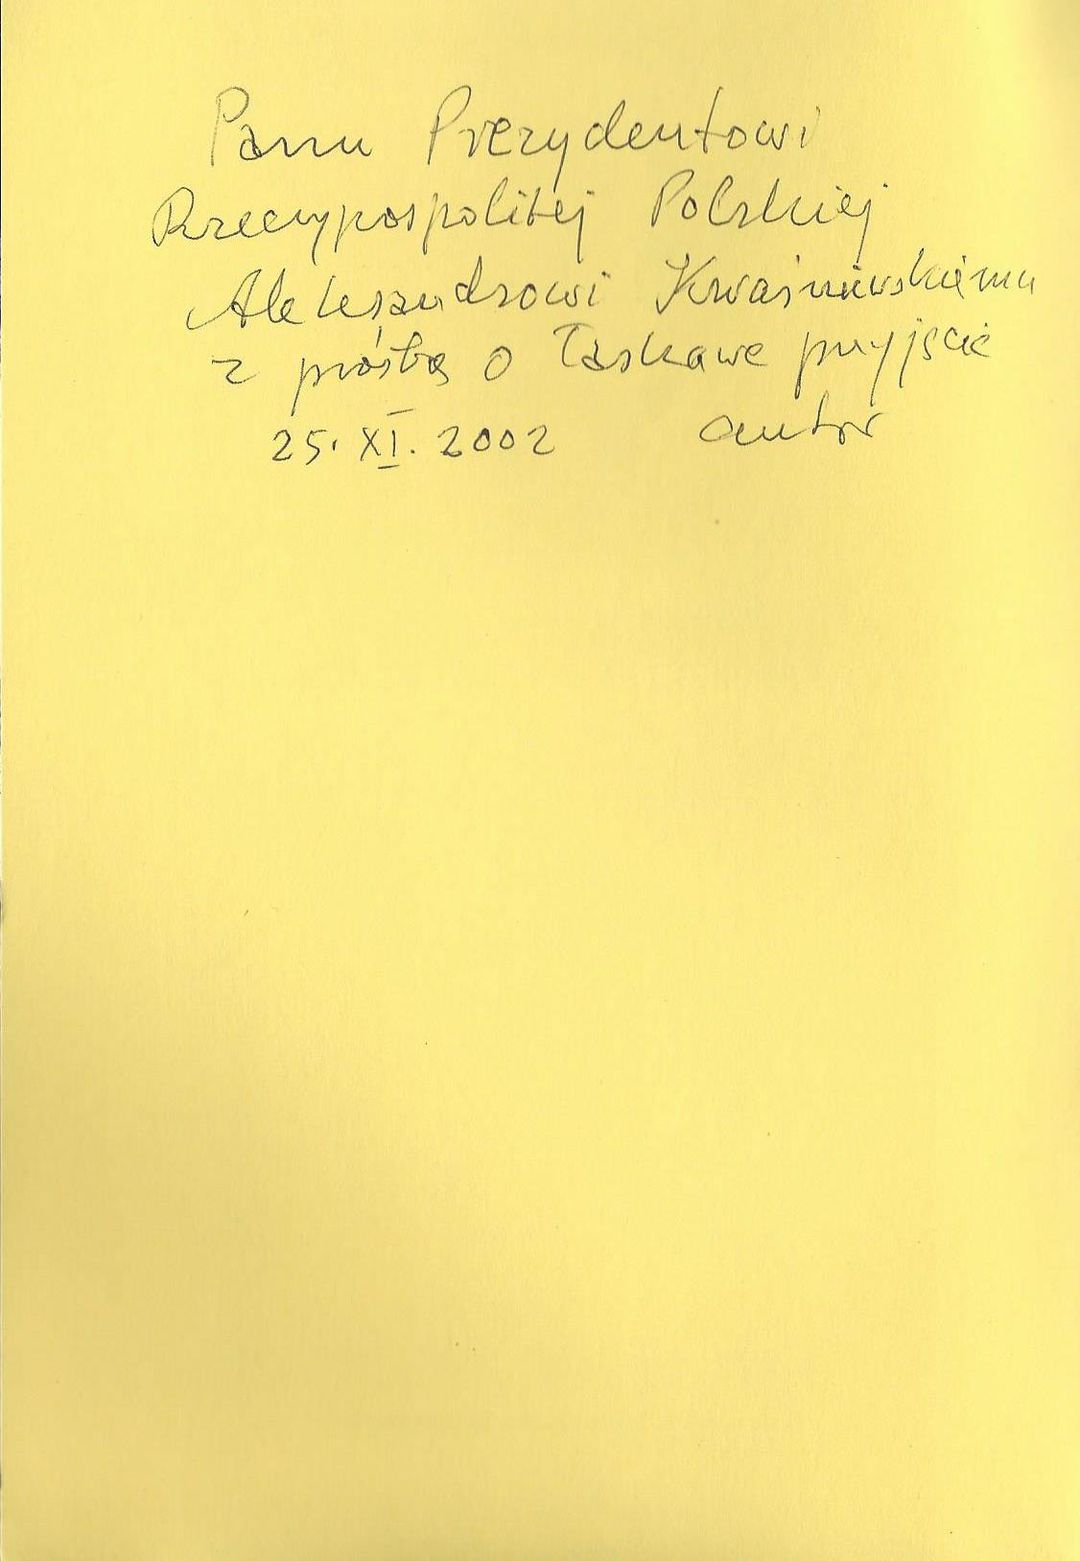 Panu Prezydentowi
Rzeczypospolitej Polskiej
Aleksandrowi Kwaśniewskiemu
z prośbą o łaskawe przyjęcie
25. XI. 2002 autor